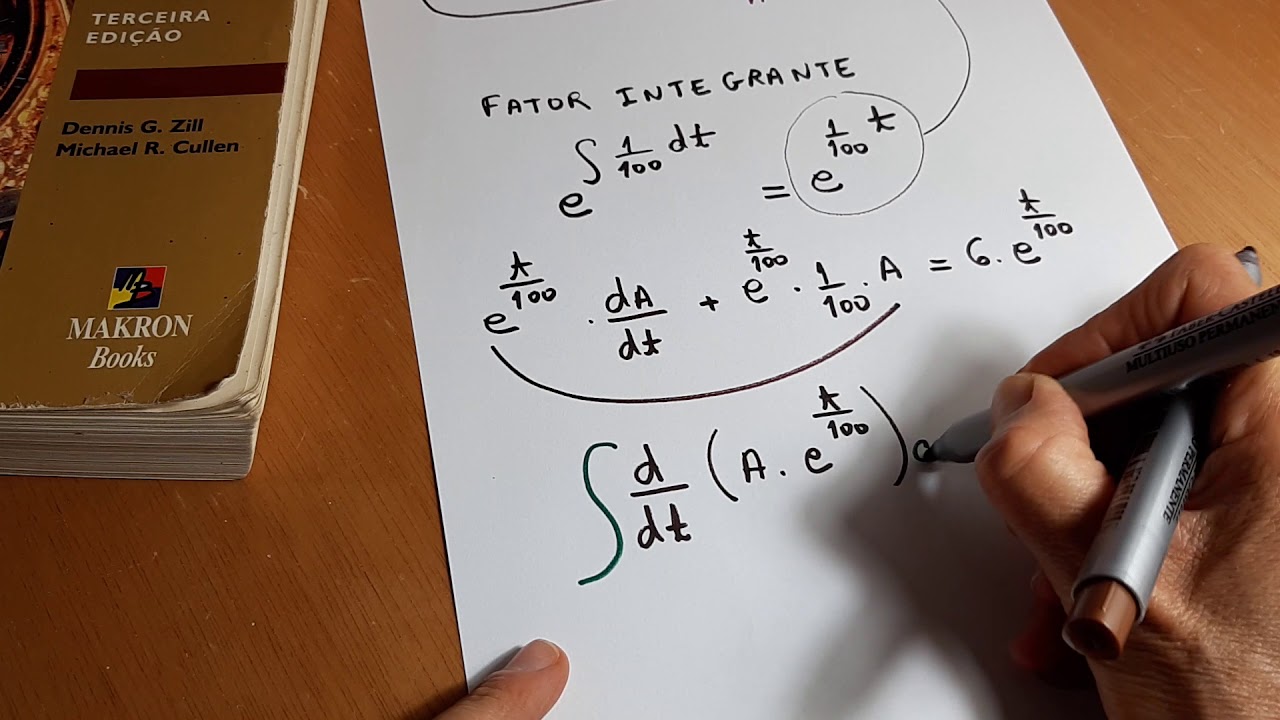 TERCEIRA
EDIÇÃO
Dennis G. Zill
Michael R. Cullen
MAKRON
Books
FATOR INTEGRANTE
e^{∫ 1/100 dt} = e^{1/100 t}
e^{t/100} . dA/dt + e^{t/100} . 1/100 . A = 6 . e^{t/100}
∫ d/dt (A . e^{t/100})
MULTIUSO PERMANEN
PERMANENTE